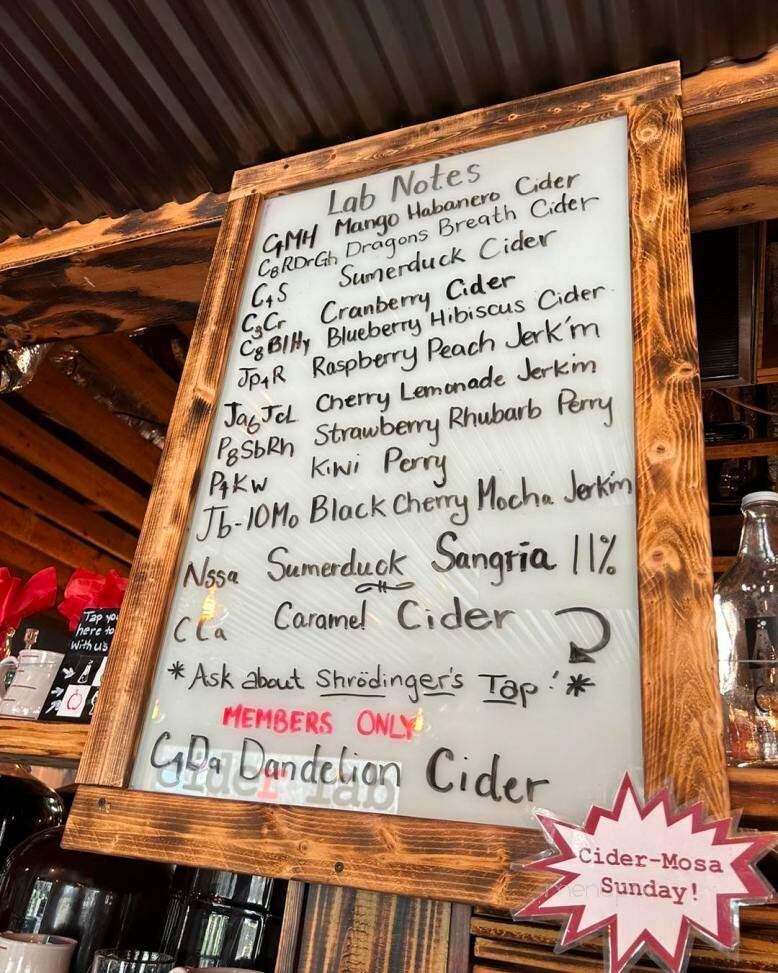 Lab Notes
C4MH Mango Habanero Cider
C8RDrGh Dragons Breath Cider
C4S Sumerduck Cider
C3Cr Cranberry Cider
C8BlHy Blueberry Hibiscus Cider
JP4R Raspberry Peach Jerk'm
Ja6JcL Cherry Lemonade Jerkim
P8SbRh Strawberry Rhubarb Perry
P4Kw Kiwi Perry
Jb-10Mo Black Cherry Mocha Jerkim
Nssa Sumerduck Sangria 11%
CCa Caramel Cider
*Ask about Shrödinger's Tap! *
MEMBERS ONLY
C1Da Dandelion Cider
cider lab
Tap you
here to
with us
Cider-Mosa
Sunday!